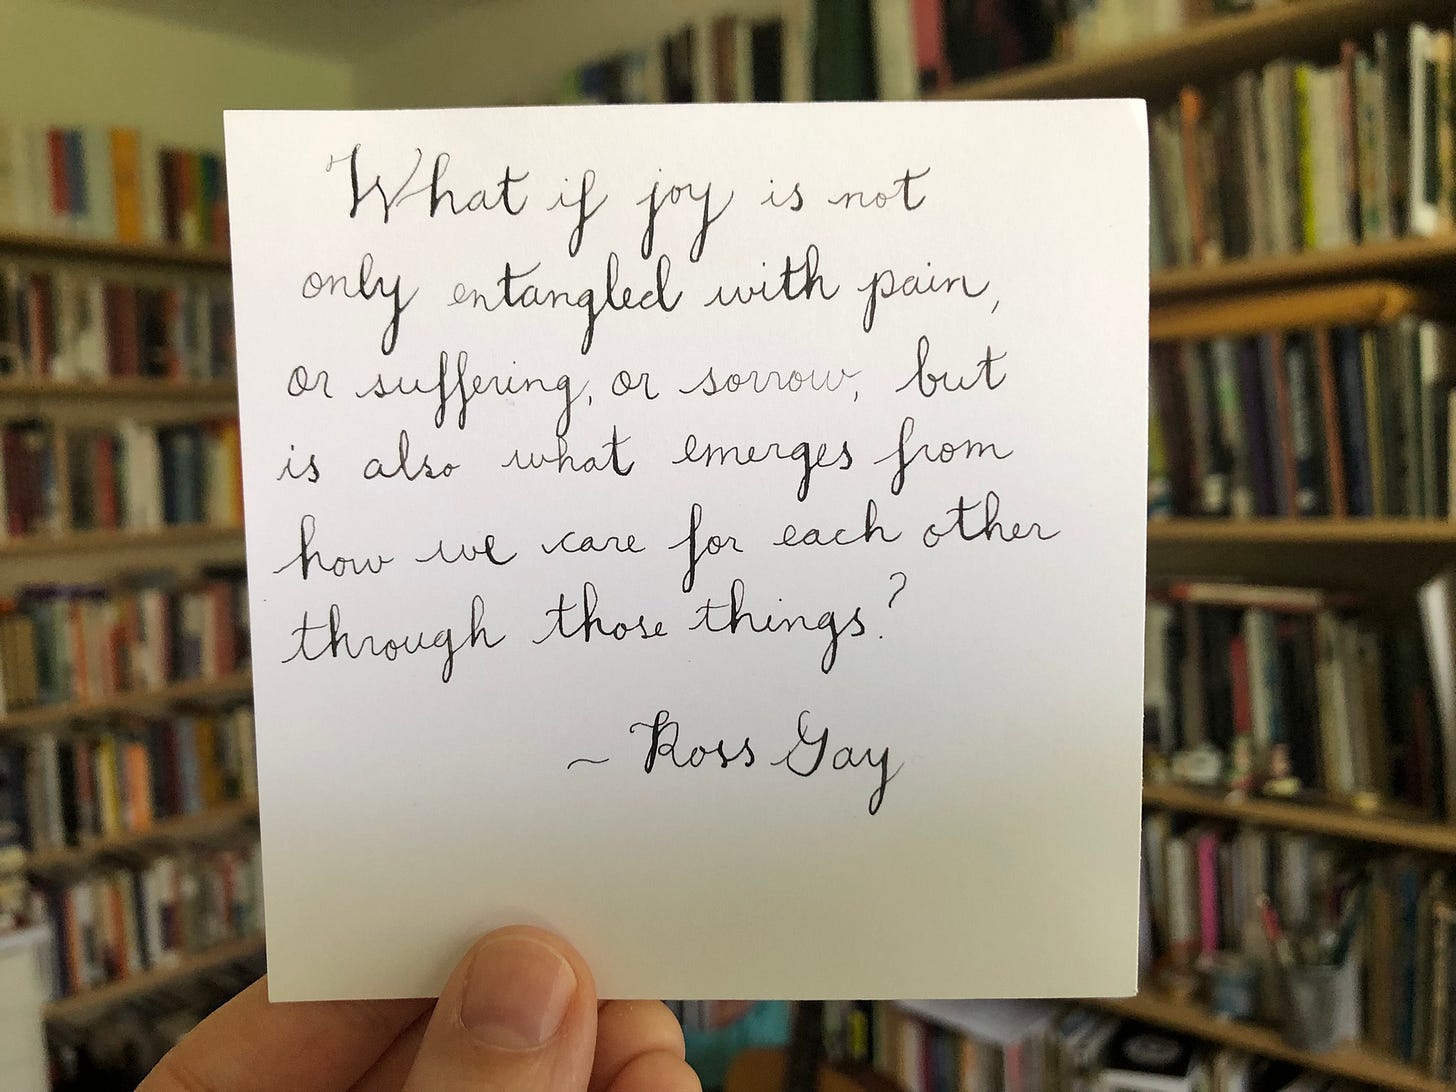 What if joy is not
only entangled with pain,
or suffering, or sorrow, but
is also what emerges from
how we care for each other
through those things?
~ Ross Gay